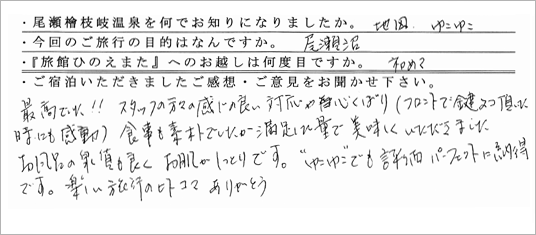 ・尾瀬檜枝岐温泉を何でお知りになりましたか。 地図 ゆこゆこ
・今回のご旅行の目的はなんですか。 尾瀬沼
・『旅館ひのえまた』へのお越しは何度目ですか。 初めて
・ご宿泊いただきましたご感想・ご意見をお聞かせ下さい。
最高でした!! スタッフの方々の感じの良い対応や心くばり(フロントで鍵2つ頂いた
時にも感動) 食事も素朴でしたが満足な量で美味しくいただきました
お風呂の泉質も良く お肌がしっとりです。"ゆこゆこ"でも評価 パーフェクトに納得
です。楽しい旅行のヒトコマ ありがとう